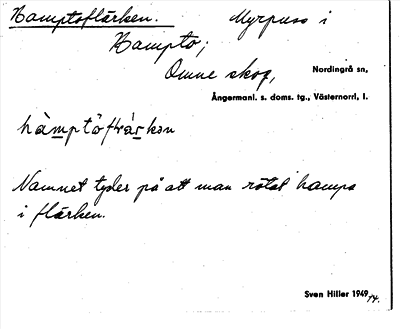 Hamptoflärken. Myrpuss i
Hampto;
Omne skog, Nordingrå sn,
Ångermanl. s. doms. tg., Västernorrl. l.
Namnet tyder på att man rötat hampa
i flärken.
Sven Hiller 1949